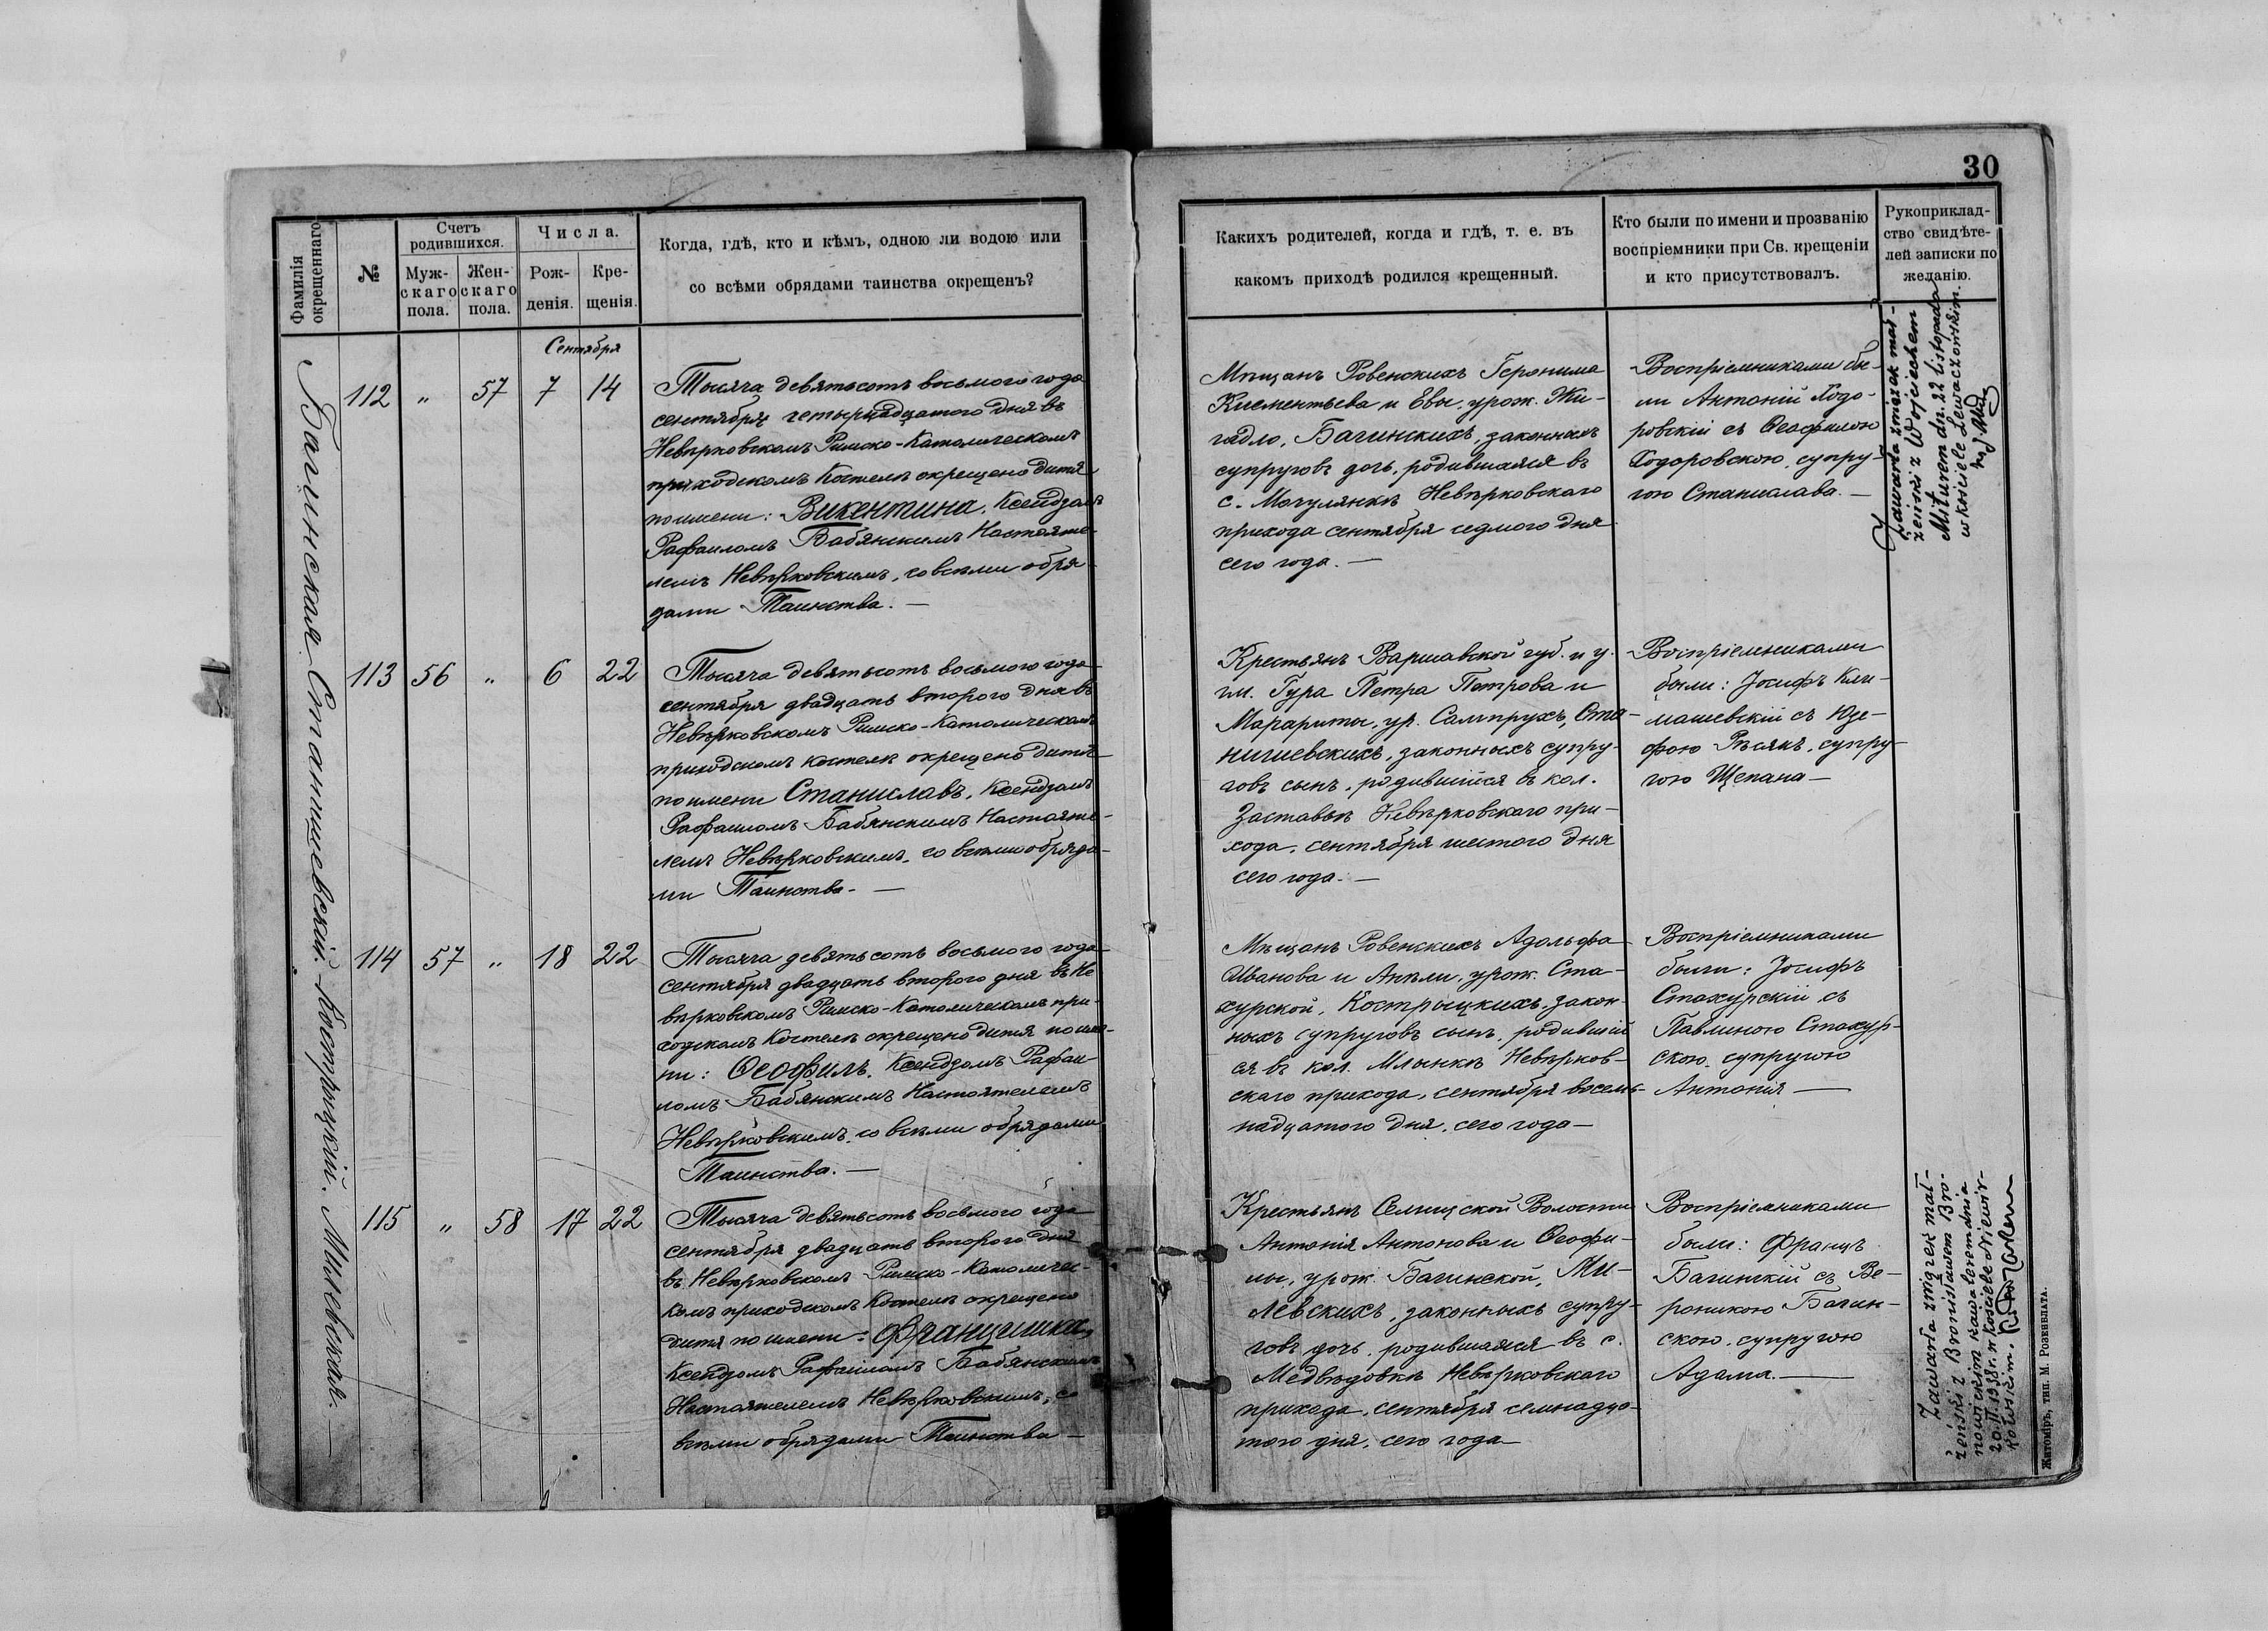 30
Фамилія
окрещеннаго
№
Счетъ
родившихся.
Муж-
скаго
пола.
Жен-
скаго
пола.
Числа.
Рож-
денія.
Кре-
щенія.
Когда, гдѣ, кто и кѣмъ, одною ли водою или
со всѣми обрядами таинства окрещенъ?
Какихъ родителей, когда и гдѣ, т. е. въ
какомъ приходѣ родился крещенный.
Кто были по имени и прозванію
воспріемники при Св. крещеніи
и кто присутствовалъ.
Рукоприклад-
ство свидѣте-
лей записки по
желанію.
Багинская Станишевскій Кострыцкій. Милевская.
Сентября
112 " 57 7 14
Тысяча девятьсотъ восьмого года
сентября четырнадцатого дня въ
Невѣрковскомъ Римско-Католическомъ
приходскомъ Костелѣ окрещено дитя
по имени: Викентина, Ксендзомъ
Рафаиломъ Бабянскимъ Настояте-
лемъ Невѣрковскимъ, со всѣми обря-
дами Таинства. —
Мѣщанъ Ровенскихъ Геронима
Климентьева и Евы, урож. Жи-
гадло, Багинскихъ, законныхъ
супруговъ дочь, родившаяся въ
с. Мочулянкѣ Невѣрковскаго
прихода сентября седмого дня
сего года. —
Воспріемниками бы-
ли Антоній Ходо-
ровскій съ Ѳеофилою
Ходоровскою, супру-
гою Станислава. —
Zawarła związek mał-
żeński z Wojciechem
Miturem dn. 22 listopada
w kościele Lewaczowskim.
113 56 " 6 22
Тысяча девятьсотъ восьмого года
сентября двадцать второго дня въ
Невѣрковскомъ Римско-Католическомъ
приходскомъ костелѣ окрещено дитя
по имени Станиславъ, Ксендзомъ
Рафаиломъ Бабянскимъ Настояте-
лемъ Невѣрковскимъ, со всѣми обряда-
ми Таинства. —
Крестьянъ Варшавской губ. и у.
гм. Гура Петра Петрова и
Марариты, ур. Сальпрухъ, Ста-
нишевскихъ, законныхъ супру-
говъ сынъ, родившійся въ кол.
Заставьѣ Невѣрковскаго при-
хода, сентября шестого дня
сего года. —
Воспріемниками
были: Іосифъ Кли-
машевскій съ Юзе-
фою Рѣсякъ, супру-
гою Щепана —
114 57 " 18 22
Тысяча девятьсотъ восьмого года
сентября двадцать второго дня въ Не
вѣрковскомъ Римско-Католическомъ при-
ходскомъ Костелѣ окрещено дитя по име-
ни: Ѳеофилъ, Ксендзомъ Рафаи-
ломъ Бабянскимъ Настоятелемъ
Невѣрковскимъ, со всѣми обрядами
Таинства. —
Мѣщанъ Ровенскихъ Адольфа
Иванова и Анѣли, урож. Ста-
хурской, Кострыцкихъ, закон-
ныхъ супруговъ сынъ, родившій
ся въ кол. Млынкѣ Невѣрков-
скаго прихода, сентября восем-
надцатого дня, сего года —
Воспріемниками
были: Іосифъ
Стахурскій съ
Павлиною Стахур-
скою, супругою
Антонія —
115 " 58 17 22
Тысяча девятьсотъ восьмого года
сентября двадцать второго дня
въ Невѣрковскомъ Римско-Католичес-
комъ приходскомъ Костелѣ окрещено
дитя по имени: Францишка,
Ксендзомъ Рафаиломъ Бабянскимъ
Настоятелемъ Невѣрковскимъ, со
всѣми обрядами Таинства —
Крестьянъ Селищской Волости
Антонія Антонова и Ѳеофи-
лы, урож. Багинской, Ми-
левскихъ, законныхъ супру-
говъ дочь, родившаяся въ с.
Медвѣдовкѣ Невѣрковскаго
прихода, сентября семнадца-
того дня, сего года —
Воспріемниками
были: Францъ
Багинскій съ Ве-
роникою Багин-
скою, супругою
Адама. —
Zawarła związek mał-
żeński z Bronisławem Bro-
nowickim kawalerem dnia
20.II.1938 r. w Kościele Niewir-
kowskim.
Житоміръ, тип. М. Розенблата.